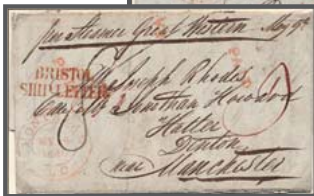 per steamer Great Western. May 9th
BRISTOL
SHIP LETTER
Mr Joseph Rhodes
Care of Mr Jonathan Howard
Hatter
Denton
near Manchester
8